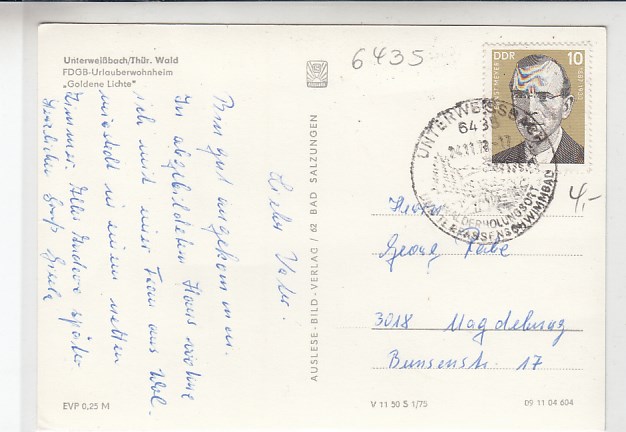 Unterweißbach/Thür. Wald
FDGB-Urlauberwohnheim
„Goldene Lichte"
6435
DDR 10
UNTERWEISSBACH
6435
WALDERHOLUNGSORT
TERRASSENSCHWIMMBAD
4,-
Lieber Vater!
Bin gut angekommen.
Im abgebildeten Haus wohne
ich mit einer Frau aus Wol-
mirstedt in einem netten
Zimmer. Alles Andere später
Herzliche Grüße Gisela
AUSLESE-BILD-VERLAG / 62 BAD SALZUNGEN
Herrn
Georg Rabe
3018 Magdeburg
Bunsenstr. 17
EVP 0,25 M
V 11 50 S 1/75
09 11 04 604